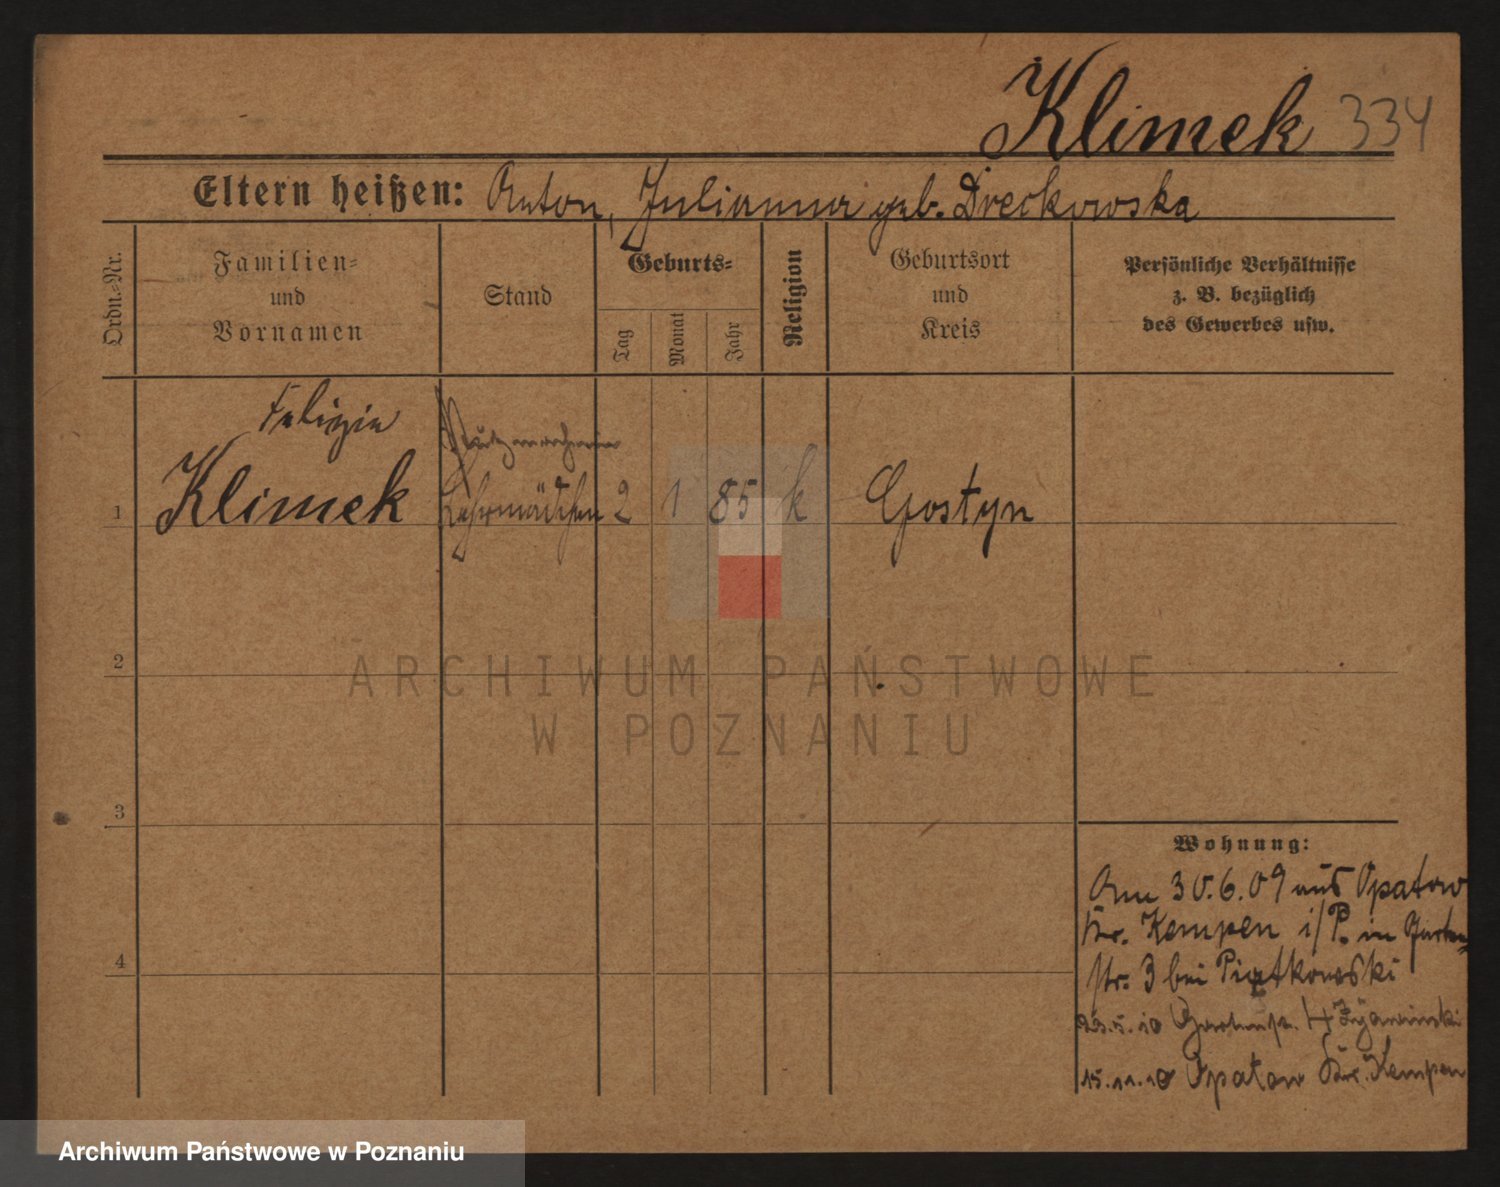 Klimek 334
Eltern heißen: Anton, Julianna geb. Dreckowska
Ordn.-Nr.
Familien-
und
Vornamen
Stand
Geburts-
Tag
Monat
Jahr
Religion
Geburtsort
und
Kreis
Persönliche Verhältnisse
z. B. bezüglich
des Gewerbes usw.
Felizia
Putzmacherin
1 Klimek Lehrmädchen 2 1 85 k Gostyn
2
3
4
Wohnung:
Am 30.6.09 aus Opatow
Kr. Kempen i/P. in Garten-
str. 3 bei Piątkowski
23.5.10 Gartenstr. 4
15.11.10 Opatow Kr. Kempen
ARCHIWUM PAŃSTWOWE
W POZNANIU
Archiwum Państwowe w Poznaniu